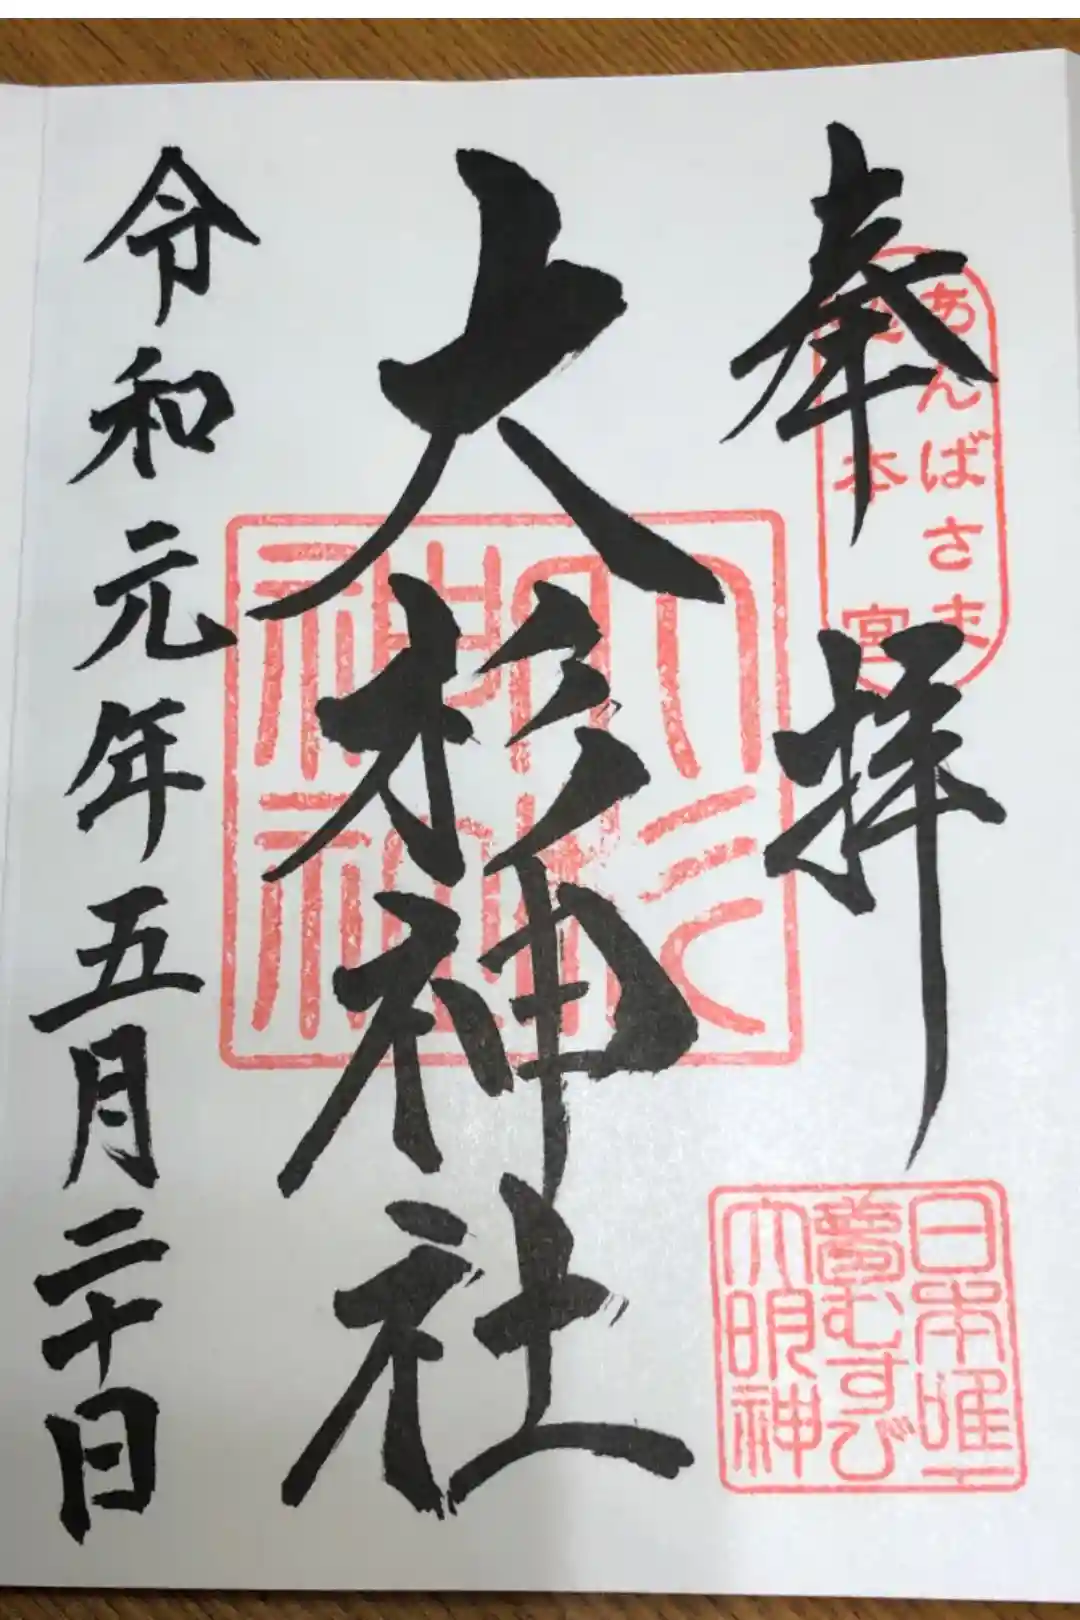 奉拝
あんばさま
総本宮
大杉神社
大杉神社
日本唯一
夢むすび
大明神
令和元年五月二十日